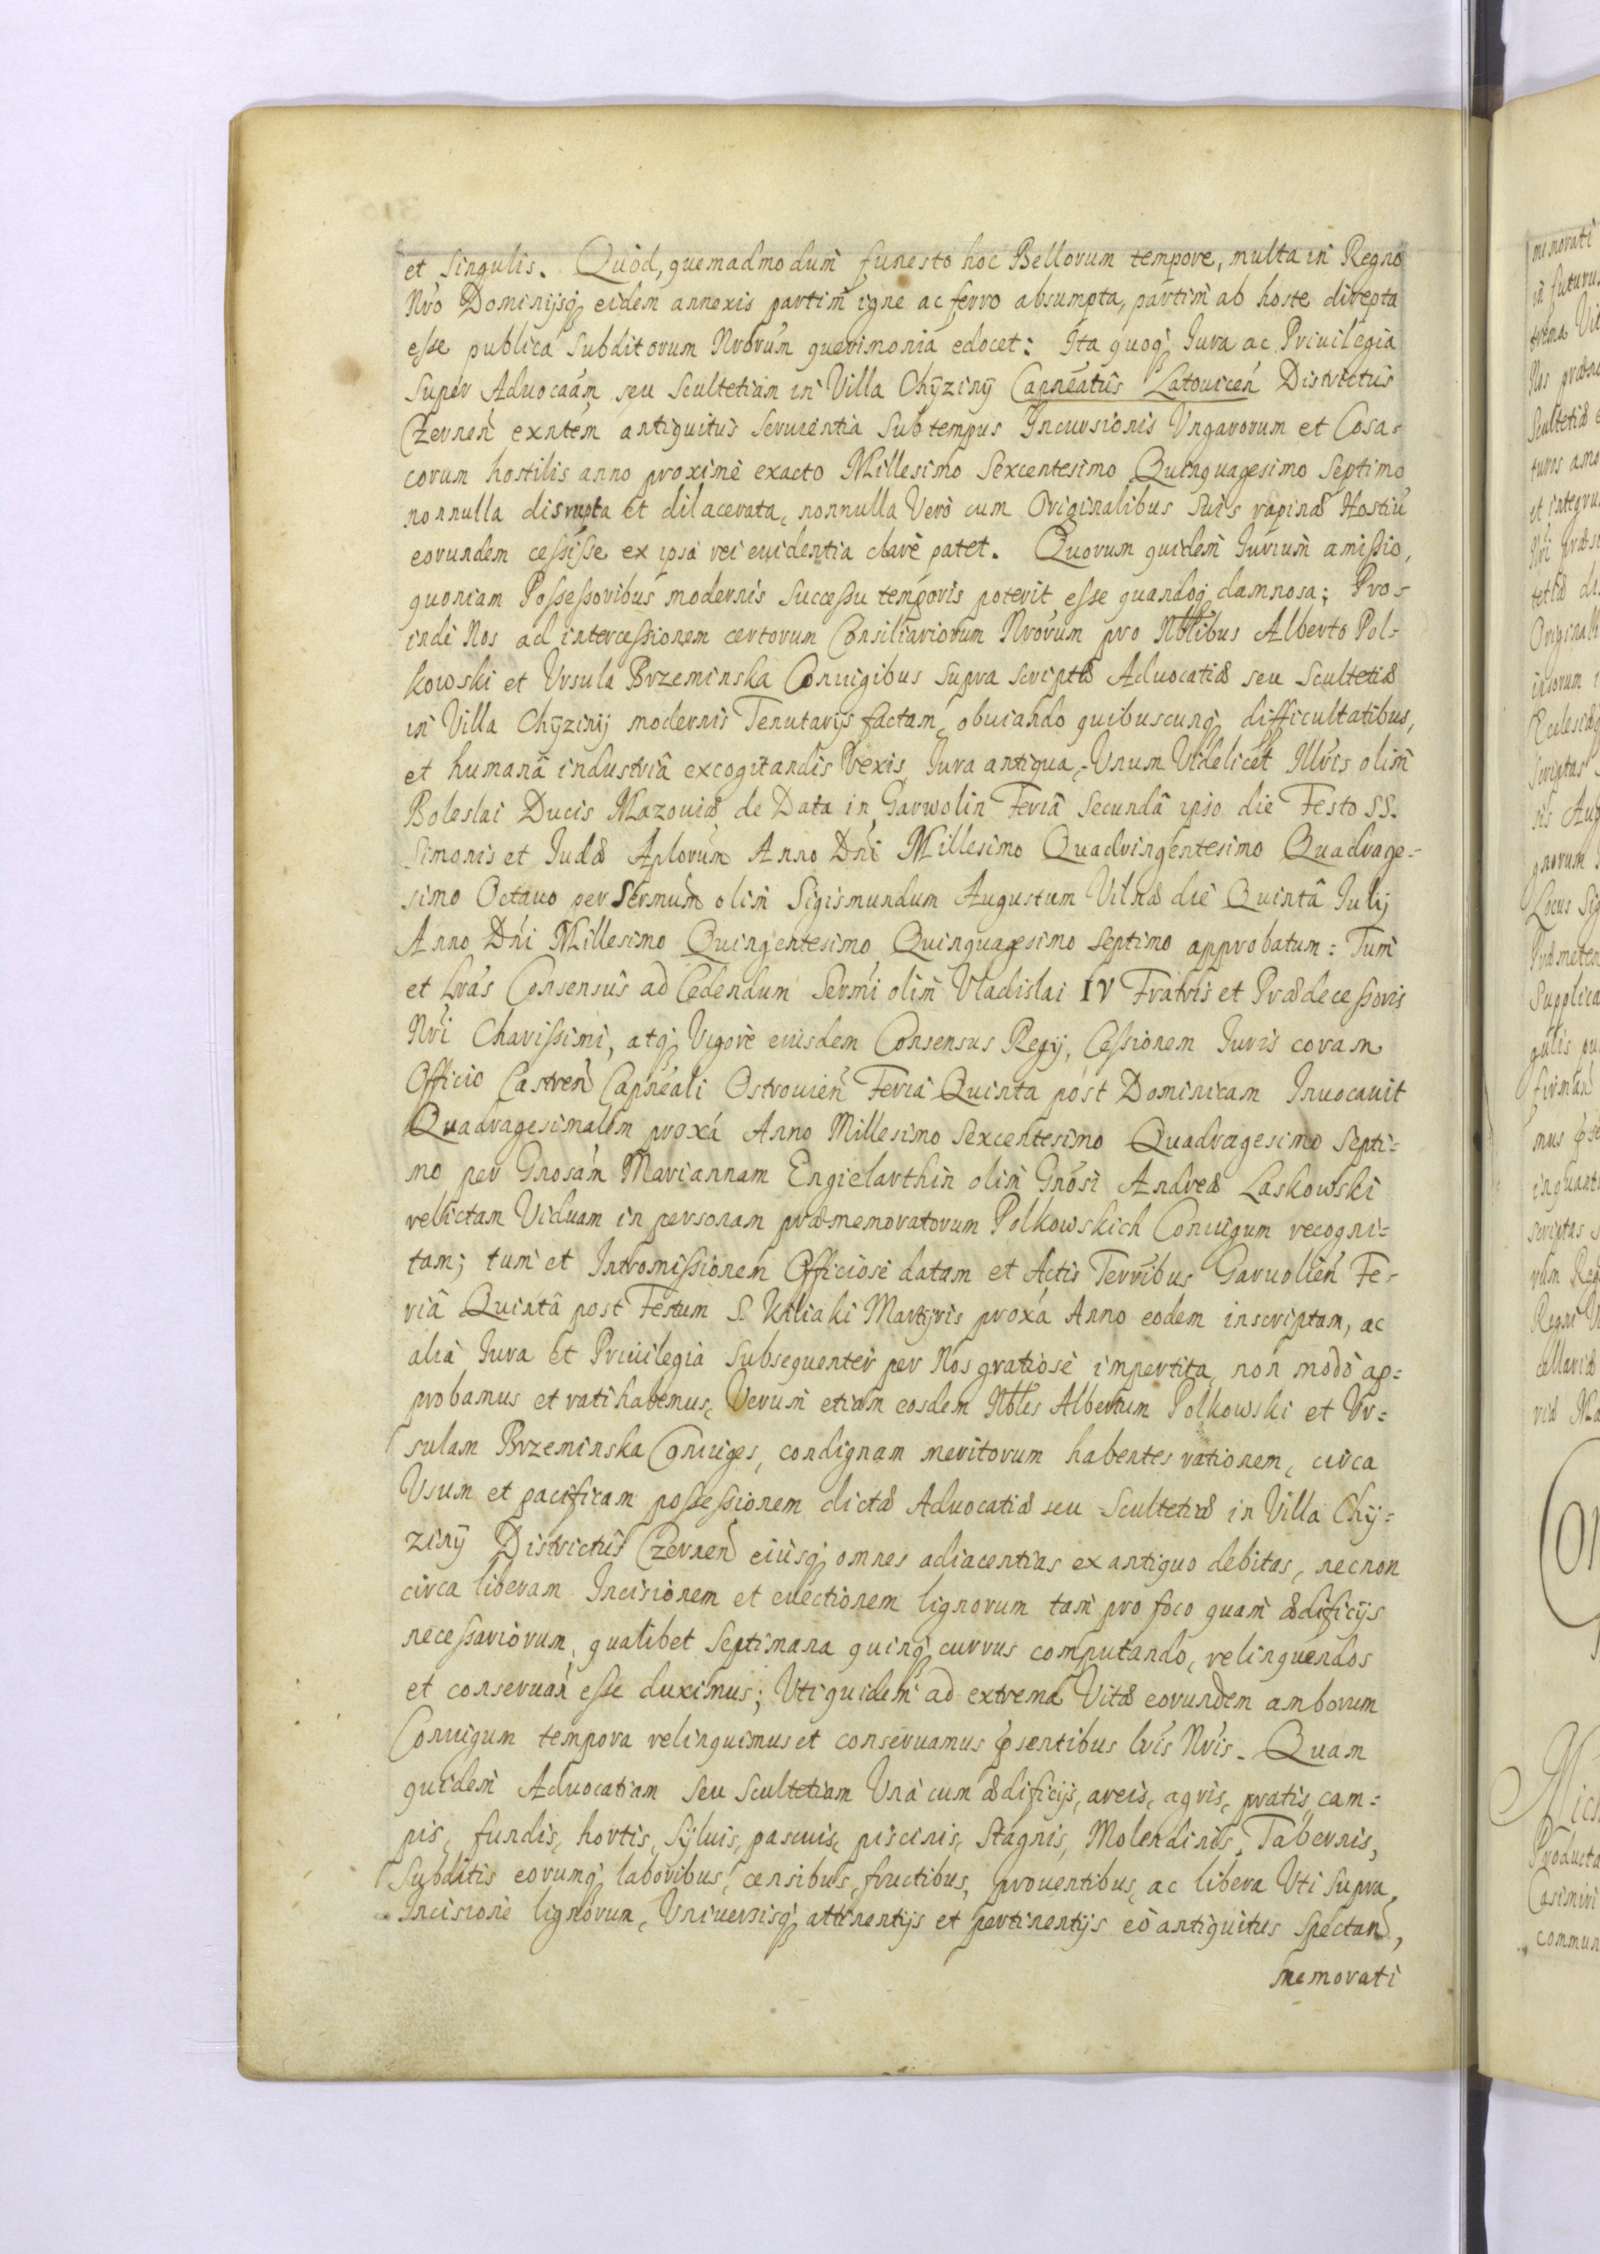 et singulis. Quod, quemadmodum funesto hoc Bellorum tempore, multa in Regno
Nro Dominijsq eidem annexis partim igne ac ferro absumpta, partim ab hoste direpta
esse publica subditorum Nrorum querimonia edocet: Ita quoq Iura ac Priuilegia
super Aduocaam seu scultetiam in Villa Chÿzinÿ Capneatus Latouicen Districtus
Czernen exntem antiquitus seruientia sub tempus Incursionis Vngarorum et Cosa-
corum hostilis anno proxime exacto Millesimo Sexcentesimo Quinquagesimo Septimo
nonnulla disrupta et dilacerata, nonnulla Vero cum Originalibus suis rapinæ Hostiu
eorundem cessisse ex ipsa rei euidentia clare patet. Quorum quidem Iurium amissio,
quoniam Possessoribus modernis successu temporis poterit esse quandoq damnosa; Pro-
indi Nos ad intercessionem certorum Consiliariorum Nrorum pro Nblibus Alberto Pol-
kowski et Vrsula Brzeminska Coniugibus supra scriptæ Aduocatiæ seu Scultetiæ
in Villa Chÿzinÿ modernis Tenutarijs factam, obuiando quibuscunq difficultatibus,
et humanâ industriâ excogitandis Vexis, Iura antiqua, Vnum Videlicet Illris olim
Boleslai Ducis Mazouiæ de Data in Garwolin Feriâ secundâ ipso die Festo SS.
Simonis et Iudæ Aplorum Anno Dni Millesimo Quadringentesimo Quadrage-
simo Octauo per Sermum olim Sigismundum Augustum Vilnæ die Quintâ Iulij
Anno Dni Millesimo Quingentesimo Quinquagesimo septimo approbatum: Tum
et Lras Consensus ad Cedendum Sermi olim Vladislai IV Fratris et Prædecessoris
Nri Charissimi, atq Vigore eiusdem Consensus Regij, Cessionem Iuris coram
Officio Castren Capneali Ostrouien Feria Quinta post Dominicam Inuocauit
Quadragesimalem proxa Anno Millesimo Sexcentesimo Quadragesimo Septi-
mo per Gnosam Mariannam Engielarthin olim Gnosi Andreæ Laskowski
relictam Viduam in personam præmemoratorum Polkowskich Coniugum recogni-
tam; tum et Intromissionem Officiose datam et Actis Terribus Garuolien Fe-
riâ Quintâ post Festum S. Kiliaki Martyris proxa Anno eodem inscriptam, ac
alia Iura et Priuilegia subsequenter per Nos gratiose impertita non modo ap-
probamus et ratihabemus, Verum etiam eosdem Nbles Albertum Polkowski et Vr-
sulam Brzeminska Coniuges, condignam meritorum habentes rationem, circa
Vsum et pacificam possessionem dictæ Aduocatiæ seu Scultetiæ in Villa Chÿ-
zinÿ Districtus Czernen eiusq omnes adiacentias ex antiquo debitas, necnon
circa liberam Incisionem et euectionem lignorum tam pro foco quam ædificijs
necessariorum, qualibet septimana quinq currus computando, relinquendos
et conseruan esse duximus; Vti quidem ad extrema Vitæ eorundem amborum
Coniugum tempora relinquimus et conseruamus psentibus lris Nris. Quam
quidem Aduocatiam seu scultetiam Vna cum ædificijs, areis, agris, pratis, cam-
pis, fundis, hortis, syluis, pascuis, piscinis, stagnis, Molendinis, Tabernis,
subditis eorumq laboribus, censibus, fructibus, prouentibus, ac libera Vti supra
Incisione lignorum, Vniuersisq attinentijs et pertinentijs eo antiquitus spectan,
memorati